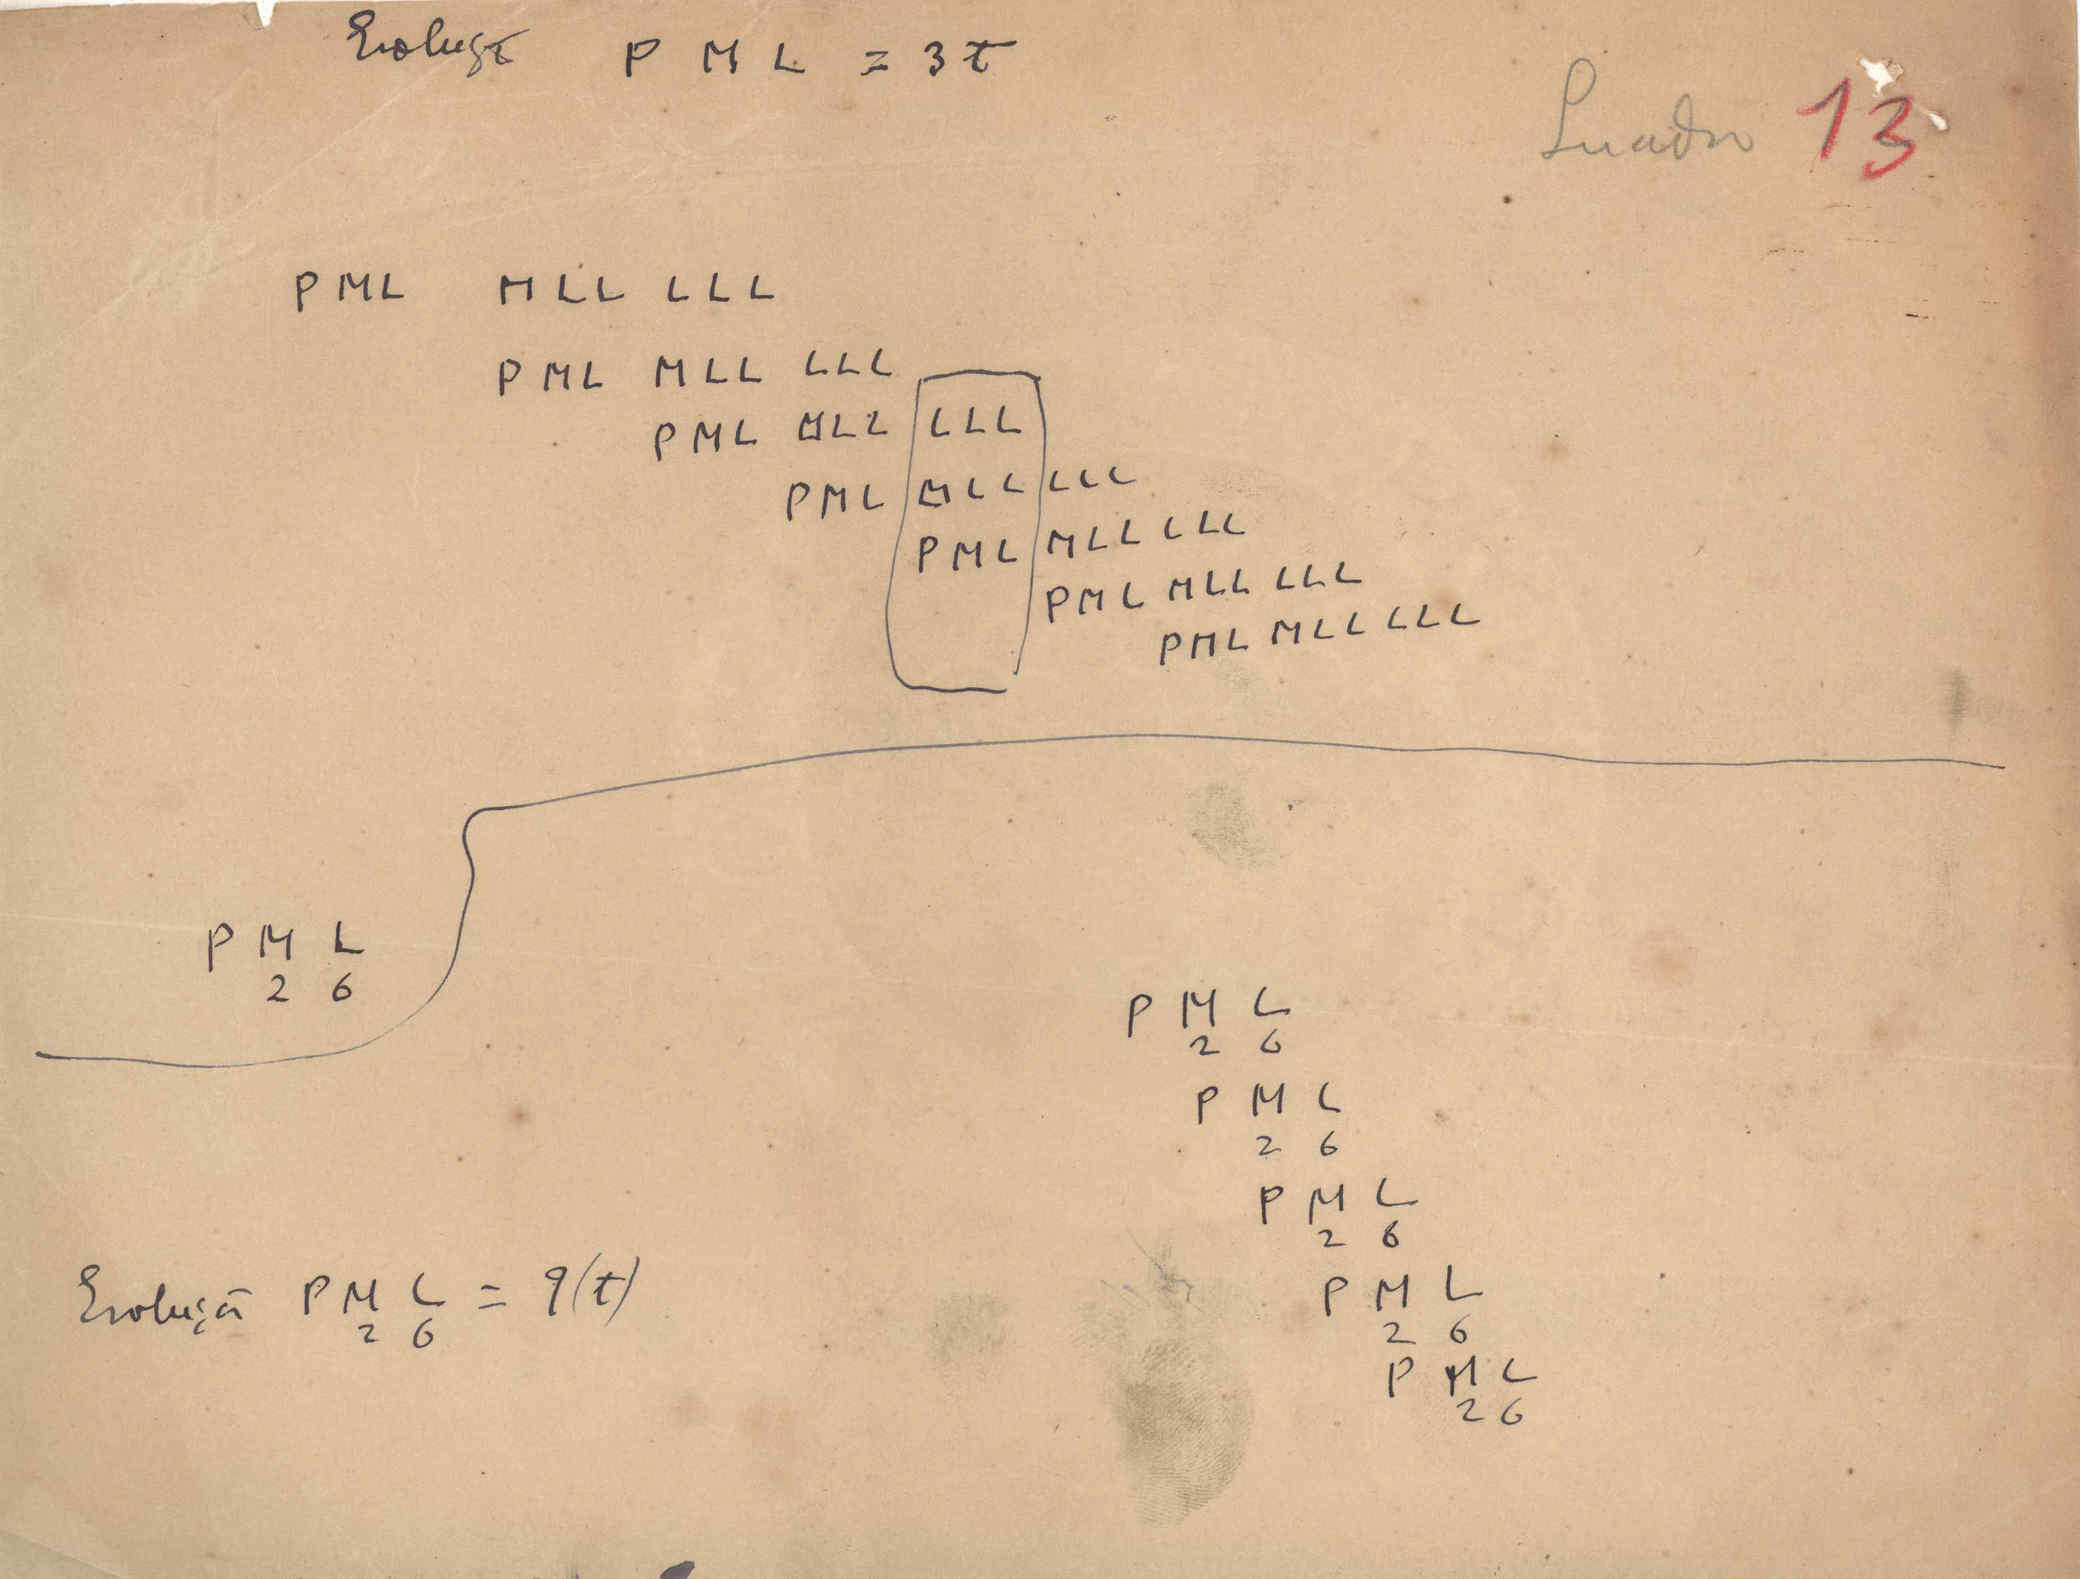 Evolução P M L = 3t
Quadro 13
PML MLL LLL
PML MLL LLL
PML MLL LLL
PML MLL LLL
PML MLL LLL
PML MLL LLL
PML MLL LLL
P M L
2 6
P M L
2 6
P M L
2 6
P M L
2 6
P M L
2 6
P M L
2 6
Evolução P M L = 9(t)
2 6